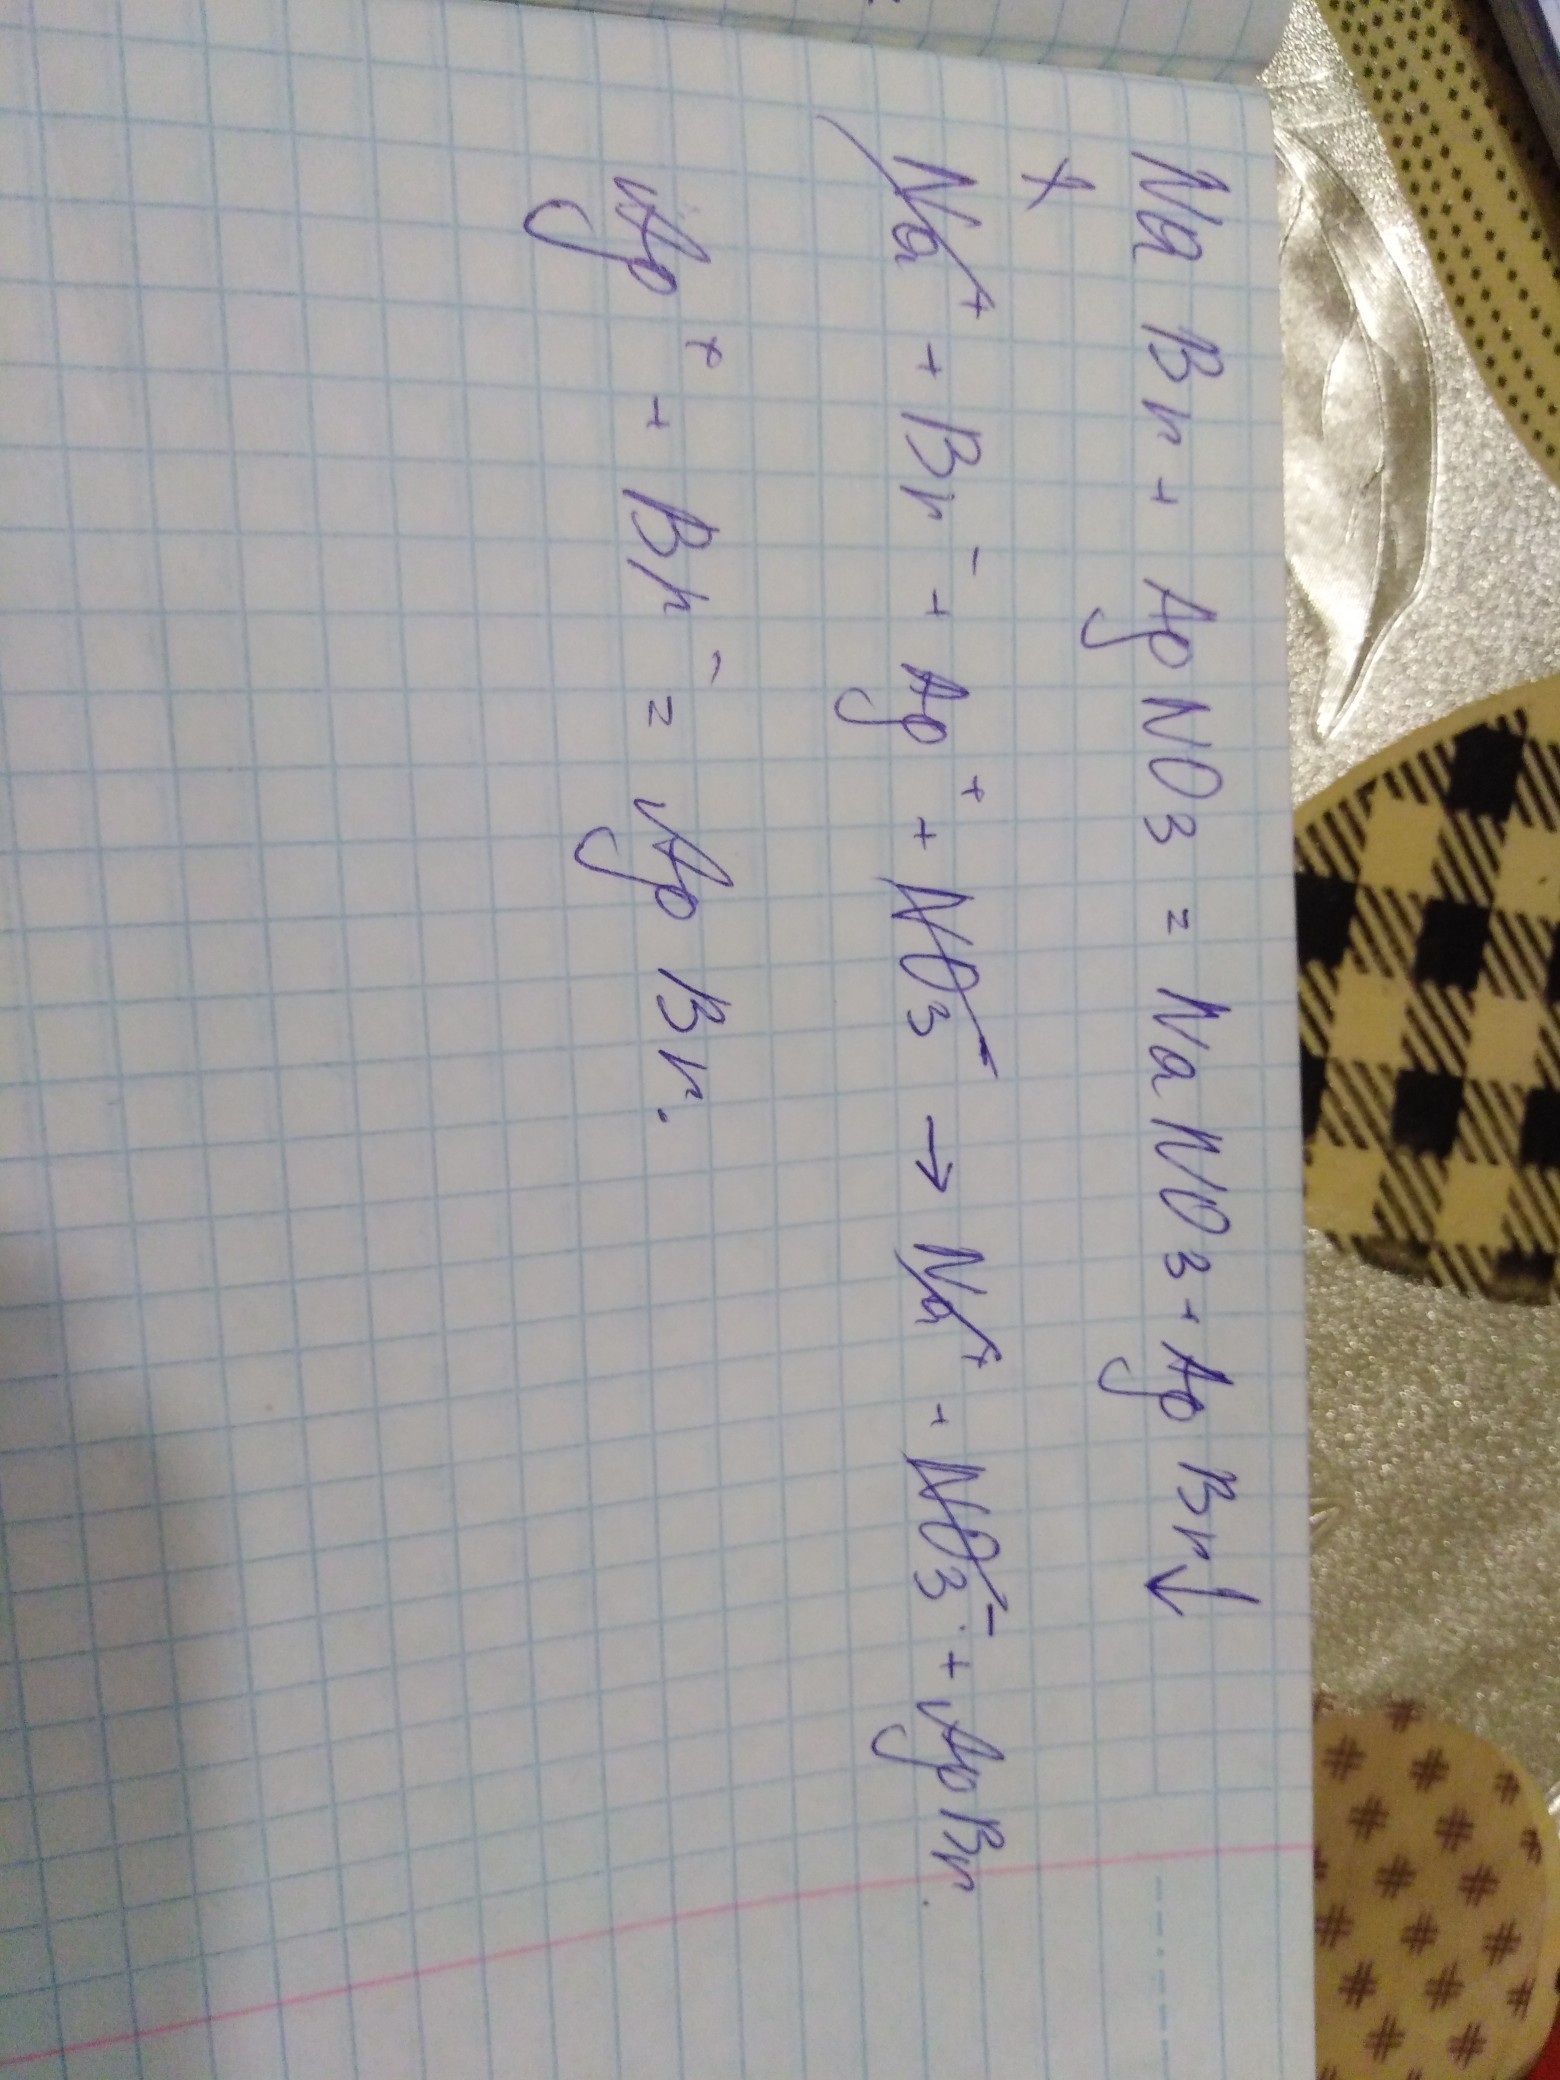 NaBr + AgNO3 = NaNO3 + AgBr↓
Na⁺ + Br⁻ + Ag⁺ + NO3⁻ → Na⁺ + NO3⁻ + AgBr.
Ag⁺ + Br⁻ = AgBr.